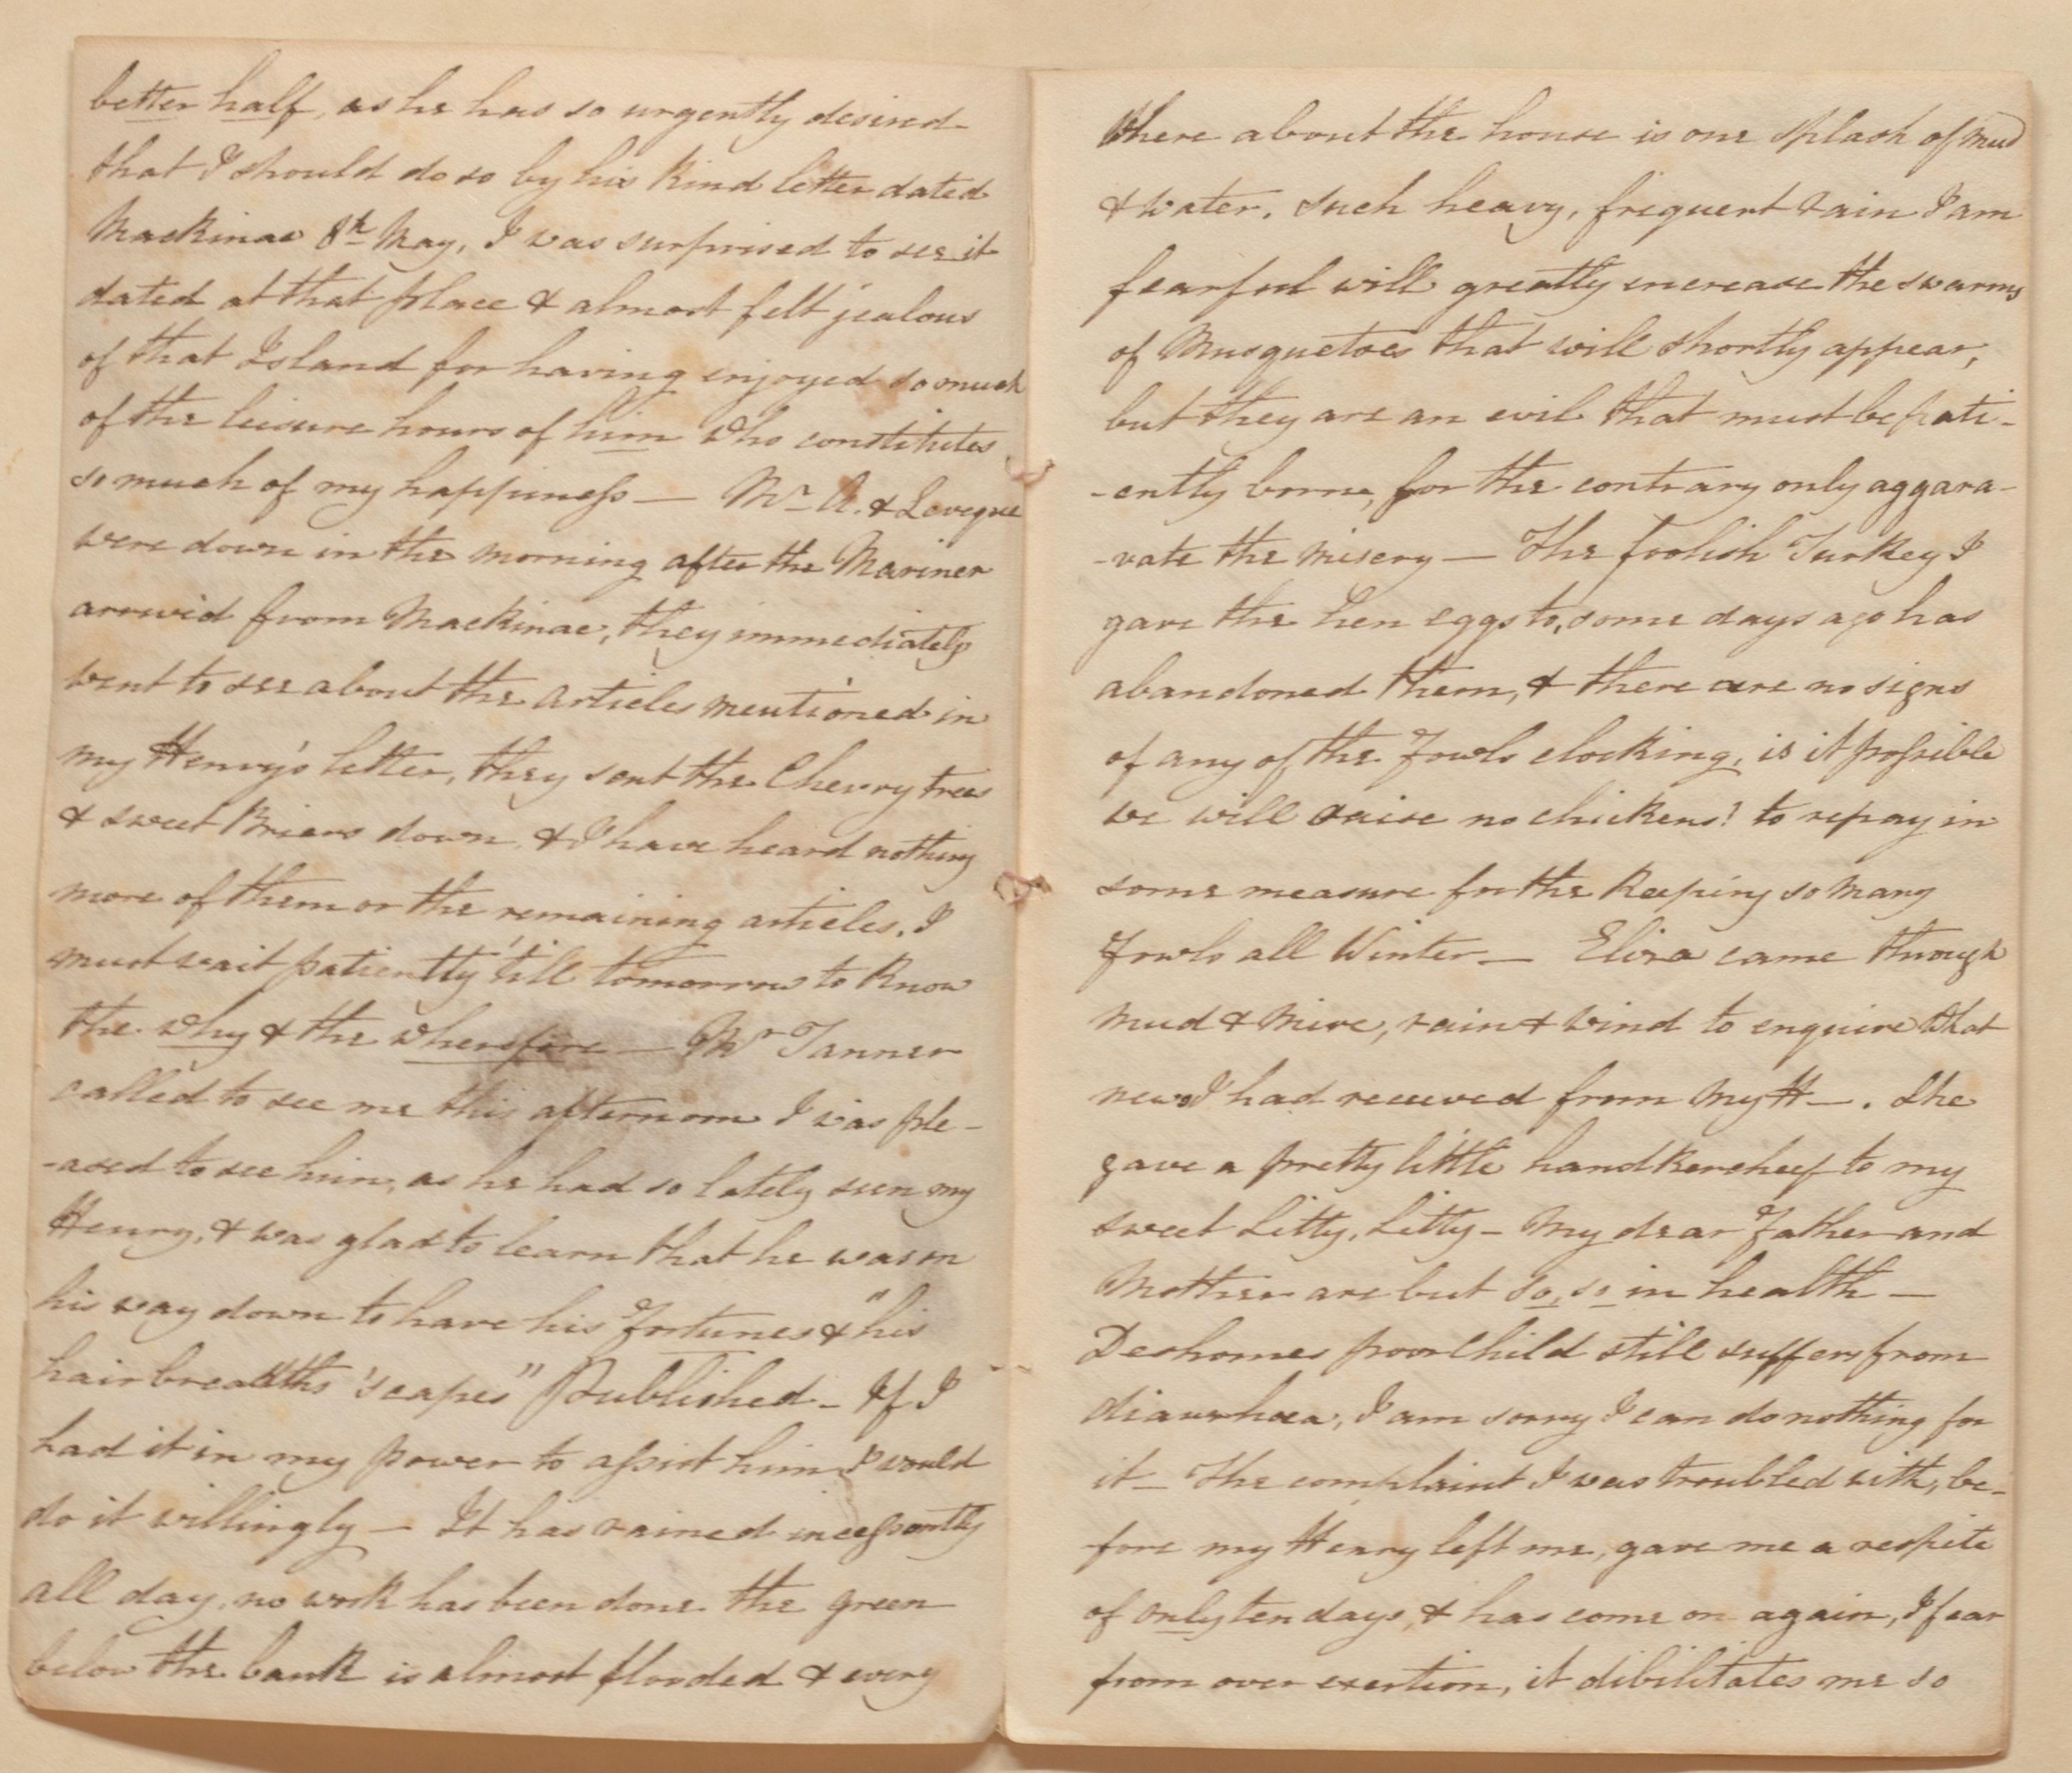 better half, as he has so urgently desired
that I should do so by his kind letter dated
Mackinac 8th May, I was surprised to see it
dated at that place & almost felt jealous
of that Island for having enjoyed so much
of the leisure hours of him who constitutes
so much of my happiness — Mr A. & Levegue
were down in the morning after the Mariner
arrivid from Mackinac, they immediately
went to see about the articles mentioned in
my Henry's letter, they sent the Cherry trees
& sweet Briers down, & I have heard nothing
more of them or the remaining articles, I
must wait patiently 'till tomorrow to know
the why & the wherefore — Mr Tanner
called to see me this afternoon I was ple-
-ased to see him, as he had so lately seen my
Henry, & was glad to learn that he was on
his way down to have his fortunes & "his
hair breadths 'scapes" Published — If I
had it in my power to assist him I would
do it willingly — It has rained incessantly
all day, no work has been done the green
below the bank is almost flooded & every
where about the house is one splash of mud
& water. Such heavy, frequent rain I am
fearful will greatly encrease the swarms
of Musquetoes that will shortly appear,
but they are an evil that must be pati-
-ently borne, for the contrary only aggara-
-vate the misery — The foolish Turkey I
gave the hen eggs to, some days ago has
abandoned them, & there are no signs
of any of the Fowls clocking, is it possible
we will raise no chickens! to repay in
some measure for the keeping so many
Fowls all Winter — Eliza came through
mud & mire, rain & wind to enquire what
news I had received from my H—. She
gave a pretty little handkercheef to my
sweet Sitty, Sitty — My dear Father and
Mother are but so, so in health —
Deshomes poor Child still suffers from
diaurhoea, I am sorry I can do nothing for
it — The complaint I was troubled with, be-
fore my Henry left me, gave me a respite
of only ten days, & has come on again, I fear
from over exertion, it dibilitates me so